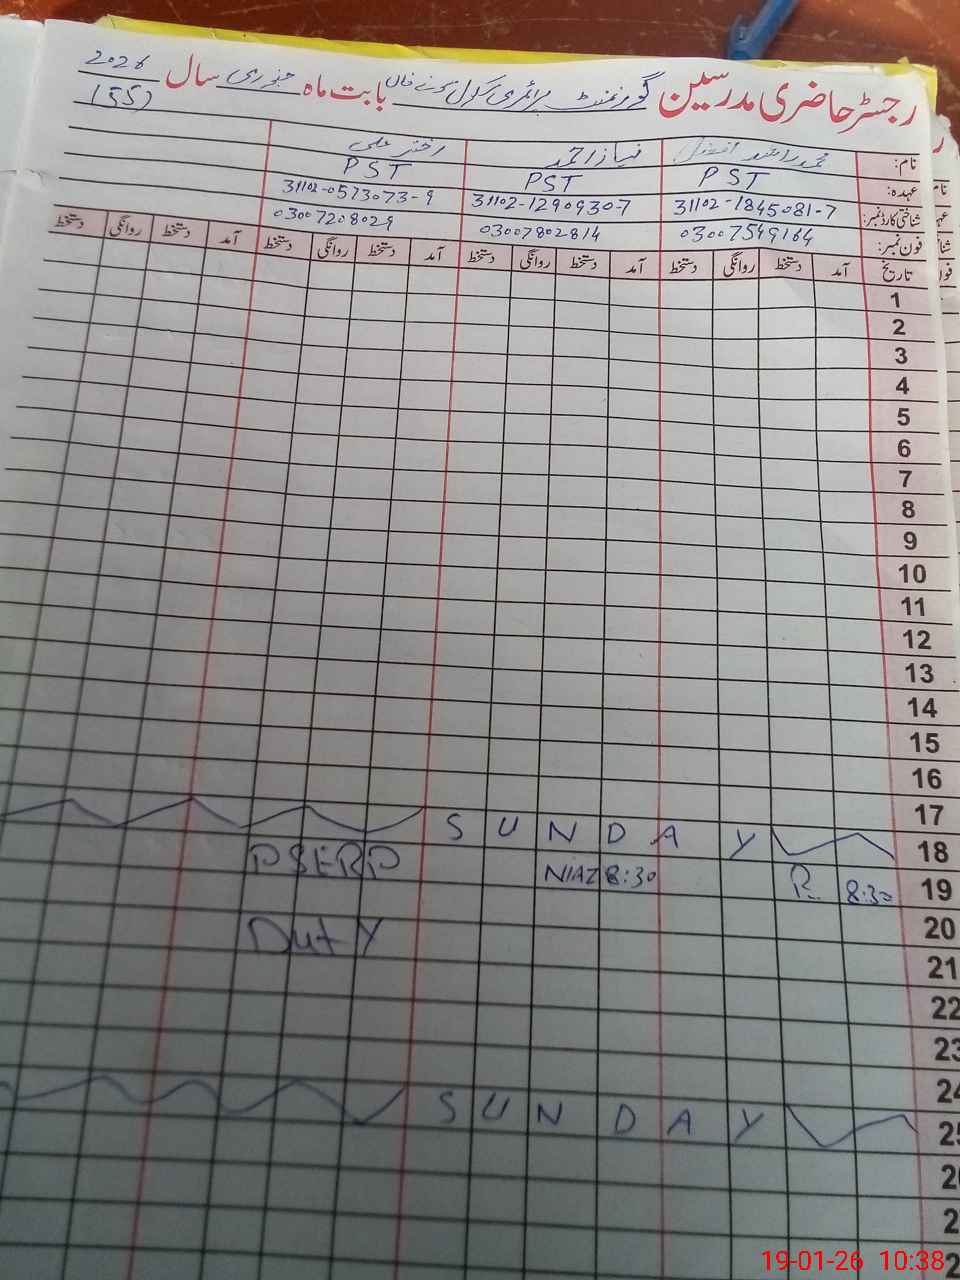 رجسٹر حاضری مدرسین گورنمنٹ پرائمری سکول بابت ماہ جنوری سال 2026
(55)
نام: نیاز احمد اختر علی
عہدہ: PST PST PST
شناختی کارڈ نمبر: 31102-1845081-7 31102-1290930-7 31102-0573073-9
فون نمبر: 03007549164 03007802814 03007208029
تاریخ آمد دستخط روانگی دستخط آمد دستخط روانگی دستخط آمد دستخط روانگی دستخط آمد دستخط روانگی دستخط
1
2
3
4
5
6
7
8
9
10
11
12
13
14
15
16
17
18 SUNDAY
19 8:30 R 8:30 NIAZ PSERP
20 Duty
21
22
23
24
25 SUNDAY
19-01-26 10:38